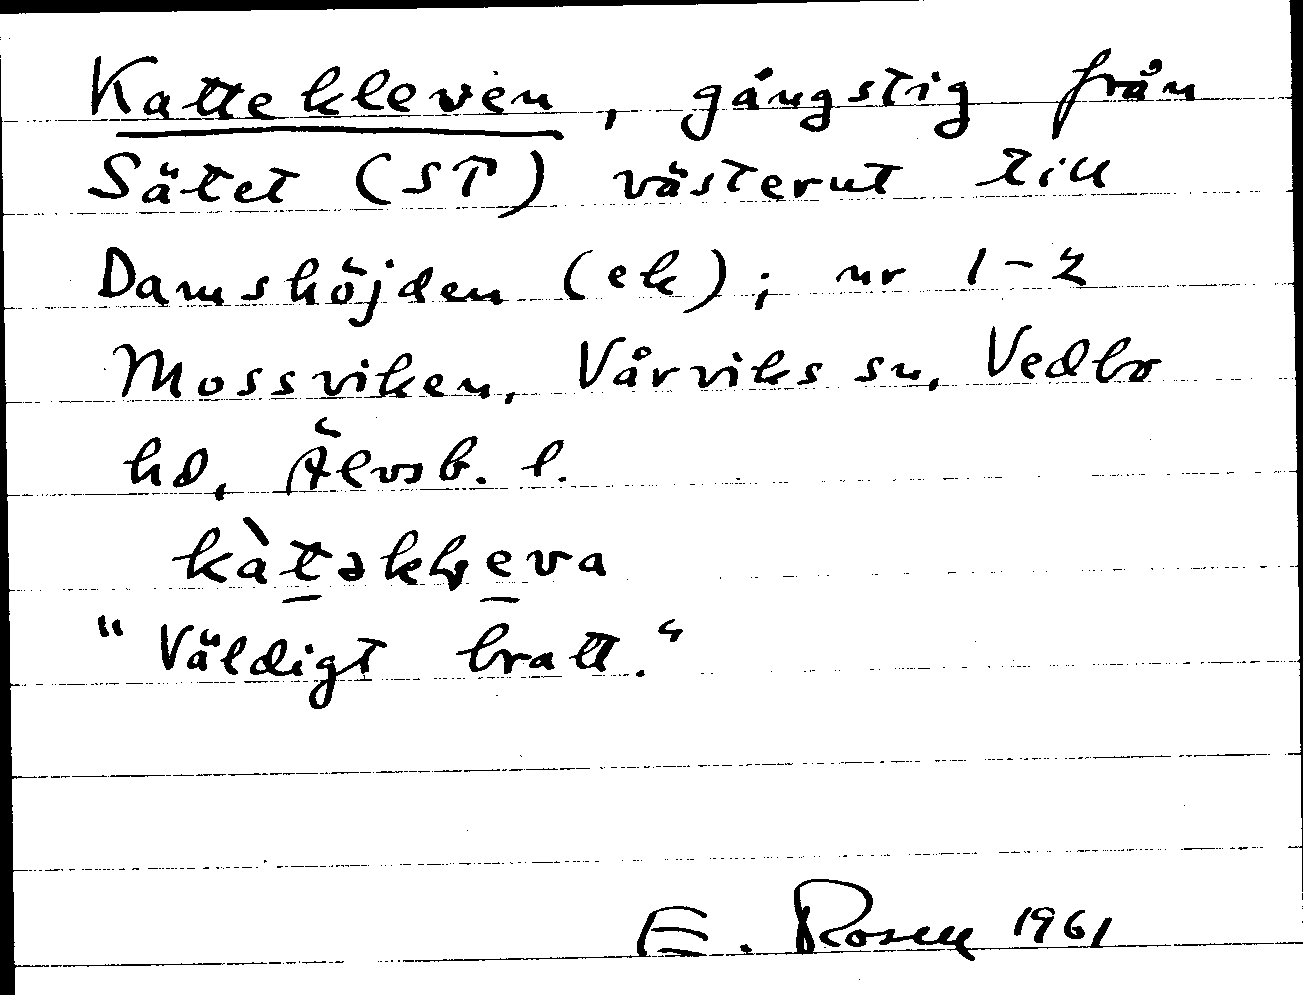 Kattekleven, gångstig från
Sätet (ST) västerut till
Damshöjden (ek); nr 1-2
Mossviken, Vårviks sn, Vedbo
hd, Älvsb. l.
"Väldigt bratt."
E. Rosell 1961